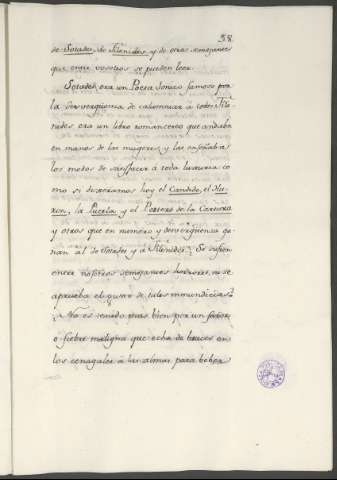 58.
de Sotades, de Filenides, y de otros semejantes
que entre vosotros se pueden leer.
Sotades era un Poeta Jonico famoso por
la desverguenza de calumniar à todos: File
nides era un libro romancesco que andaba
en manos de las mugeres, y las enseñaba
los modos de satisfacer à toda luxuria co
mo si dixeramos hoy el Candido, el
la Pucela y el Portero de la Cartuxa
y otros que en mentira y desverguenza ga
nan al de Sotades y à Filenides. Se sufren
entre nosotros semejantes horrores, ni se
aprueba el gusto de tales inmundicias?
¿No es tenido mas bien por un furor,
o fiebre maligna que echa de bruces en
los cenagales à las almas para beber